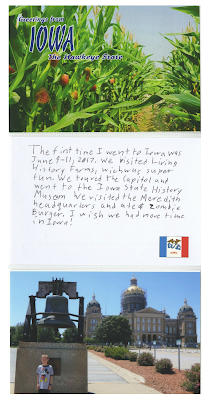 Greetings from
IOWA
the Hawkeye State
The first time I went to Iowa was
June 9-11, 2017. We visited Living
History Farms, wich was super
fun. We toured the Capitol and
went to the Iowa State History
Museum. We visited the Meredith
headquarters and ate @ Zombie
Burger. I wish we had more time
in Iowa!